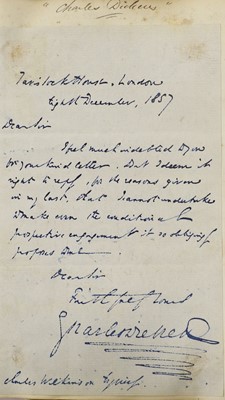 "Charles Dickens"
Tavistock House, London
Eighth December, 1857
Dear Sir
I feel much indebted to you
for your kind letter. But I deem it
right to reply, for the reasons given
in my last, that I cannot undertake
to make even the conditional
prospective engagement it so obligingly
proposes to me.
Dear Sir
Faithfully Yours
Charles Dickens
Charles Wilkinson Esquire.